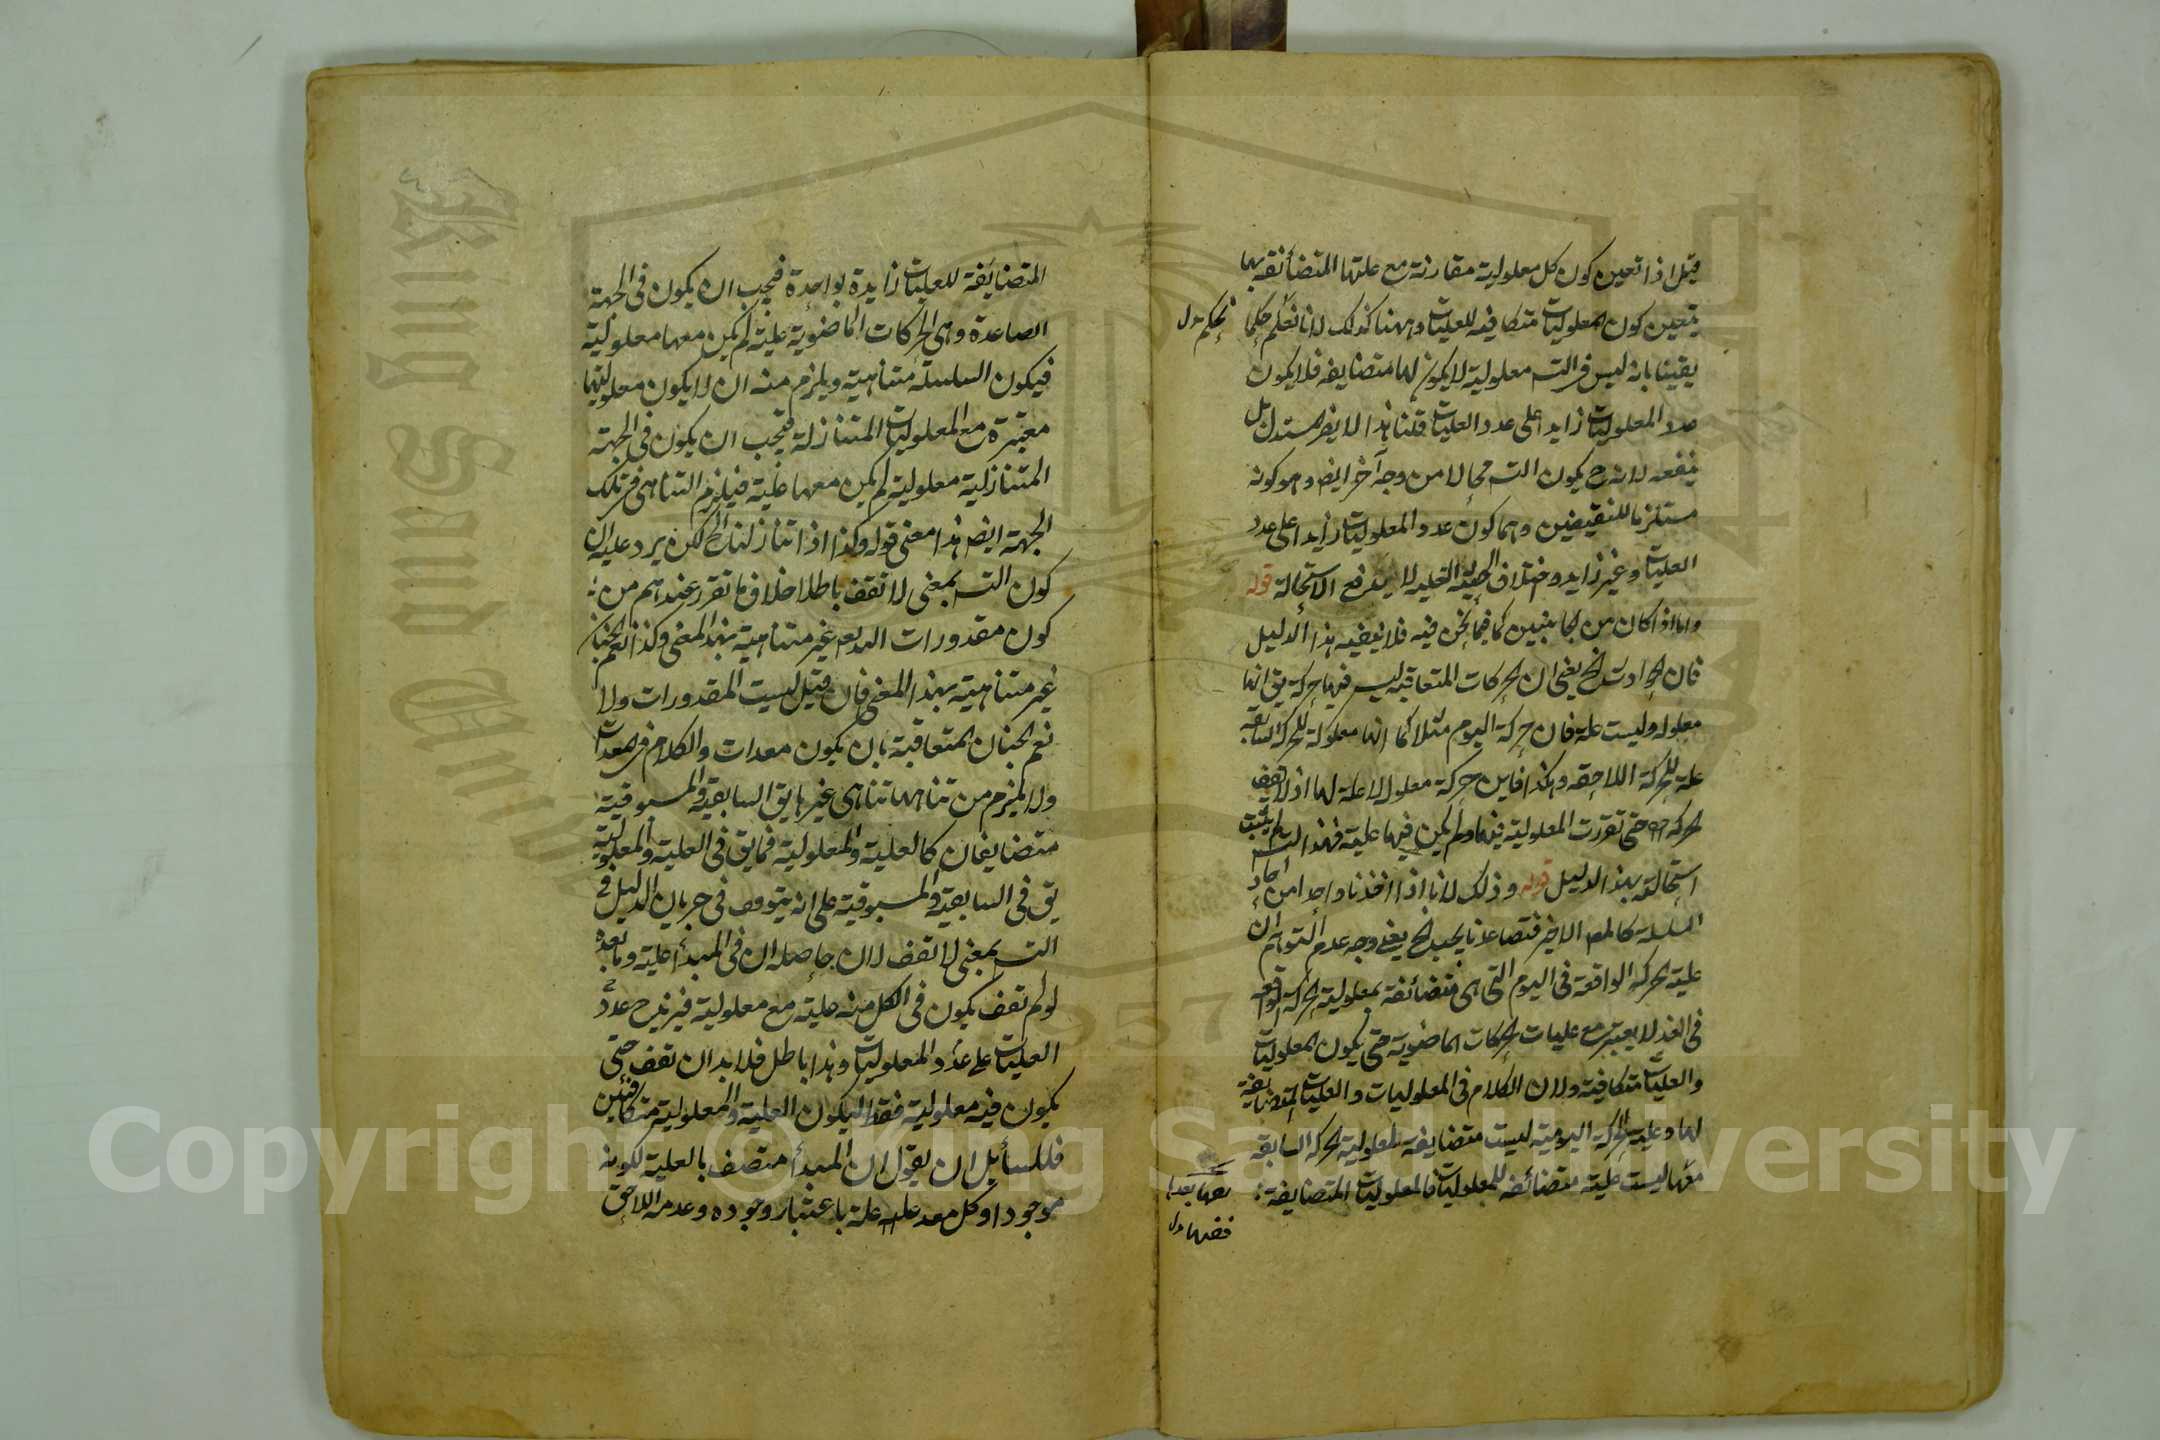 قيل اذا تعين كون كل معلولية مقارنة مع علتها المتضائفة بها
يتعين كون المعلوليات متكافيه للعليات وههنا كذلك لانا نعلم حكما
يقينا بانه ليس فى التسـ معلولية لا يكون لها متضايفه فلا يكون
عدد المعلوليات زايدا على عدد العليات قلنا هذا لا يضر المستدل بل
ينفعه لانه ح يكون التسـ محالا من وجه آخر ايضا وهو كونه
مستلزما للنقيضين وهما كون عدد المعلوليات زايدا على عدد
العليات وغير زايد و اختلاف لا يدفع الاستحالة قوله
واما اذا كان من الجانبين كما فيما نحن فيه فلا يقتضيه هذا الدليل
فان الحوادث الخ يعنى ان الحركات المتعاقبه ليس فيها حركة يق انها
معلوله وليست علة فان حركة اليوم مثلا كما انها معلولة للحركة السابقة
علة للحركة اللاحقه وهكذا فاين حركة معلولا لا علة لها اذ لا يقف
الحركه حتى تقررت المعلولية فيها ولم يكن فيها علية فهذا التسـ لم يثبت
استحالته بهذا الدليل قوله وذلك لانا اذا اخذنا واحدا من احاد
السلسلة كالمعلول الاخير فتصاعدنا يجب الخ يعنى وجه عدم التوهم ان
علية الحركه الواقعة فى اليوم التى هى متضائفة بمعلولية الحركة الواقعة
فى الغد لا يعتبر مع عليات الحركات الماضوية حتى يكون المعلوليات
والعليات متكافية ولان الكلام فى المعلوليات والعليات المتضايفة
لها وعلية الحركة اليومية ليست متضايفة لمعلولية الحركه السابقه
معها ليست علية متضائفه للمعلوليات فالمعلوليات المتضايفة
نحكم بدل
بعدها
بدل
المتضايفة للعليات زايدة بواحدة فيجب ان يكون فى الجهة
الصاعدة وهى الحركات الماضوية علية لم يكن معها معلولية
فيكون السلسلة متناهية ويلزم منه ان لا يكون معلوليتها
معتبرة مع المعلوليات المتنازلة فيجب ان يكون فى الجهة
المتنازلية معلولية لم يكن معها علية فيلزم التناهى فى تلك
الجهة ايضا هذا معنى قوله وكذا اذا تنازلنا الخ لكن يرد عليه ان
كون التسـ بمعنى لا تقف باطلا خلاف ما تقرر عندهم من
كون مقدورات الله تع غير متناهية بهذا المعنى وكذا نعم الجنان
غير متناهية بهذا المعنى فان قيل ليست المقدورات ولا
نعم الجنان المتعاقبة بان يكون معدات والكلام فى المعدات
ولا يلزم من تناهيها تناهى غيرها يق السابقية والمسبوقية
متضايفان كالعلية والمعلولية فما يق فى العلية والمعلولية
يق فى السابقية والمسبوقية على انه يتوقف فى جريان الدليل فى
التسـ بمعنى لا تقف لان حاصله ان فى المبدأ علية وما بعده
لو لم تقف يكون فى الكل منه علية مع معلولية فيزيد ح عدد
العليات على عدد المعلوليات وهذا باطل فلا بد ان تقف حتى
يكون فيه معلولية فقط ليكون العلية والمعلولية متكافئين
فللسائل ان يقول ان المبدأ متصف بالعلية لكونه
موجودا وكل معد علة باعتبار وجوده وعدمه اللاحق
Copyright © King Saud University
King Saud University
1957